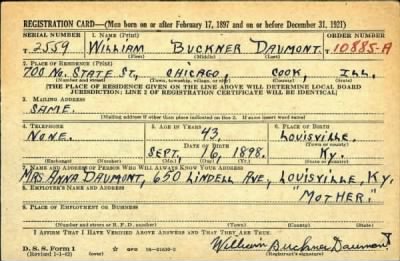 REGISTRATION CARD—(Men born on or after February 17, 1897 and on or before December 31, 1921)
SERIAL NUMBER 1. NAME (Print) ORDER NUMBER
T 2559 WILLIAM BUCKNER DAUMONT. 10885-A
(First) (Middle) (Last)
2. PLACE OF RESIDENCE (Print)
700 NO. STATE ST, CHICAGO, COOK, ILL.
(Number and street) (Town, township, village, or city) (County) (State)
[THE PLACE OF RESIDENCE GIVEN ON THE LINE ABOVE WILL DETERMINE LOCAL BOARD
JURISDICTION; LINE 2 OF REGISTRATION CERTIFICATE WILL BE IDENTICAL]
3. MAILING ADDRESS
SAME.
[Mailing address if other than place indicated on line 2. If same insert word same]
4. TELEPHONE 5. AGE IN YEARS 6. PLACE OF BIRTH
NONE. 43. LOUISVILLE,
DATE OF BIRTH (Town or county)
SEPT. 16, 1898. KY.
(Exchange) (Number) (Mo.) (Day) (Yr.) (State or country)
7. NAME AND ADDRESS OF PERSON WHO WILL ALWAYS KNOW YOUR ADDRESS
MRS ANNA DAUMONT, 650 LINDELL AVE, LOUISVILLE, KY.
8. EMPLOYER'S NAME AND ADDRESS "MOTHER."
9. PLACE OF EMPLOYMENT OR BUSINESS
(Number and street or R. F. D. number) (Town) (County) (State)
I AFFIRM THAT I HAVE VERIFIED ABOVE ANSWERS AND THAT THEY ARE TRUE.
D. S. S. Form 1
(Revised 1-1-42) GPO William Buckner Daumont
(Registrant's signature)